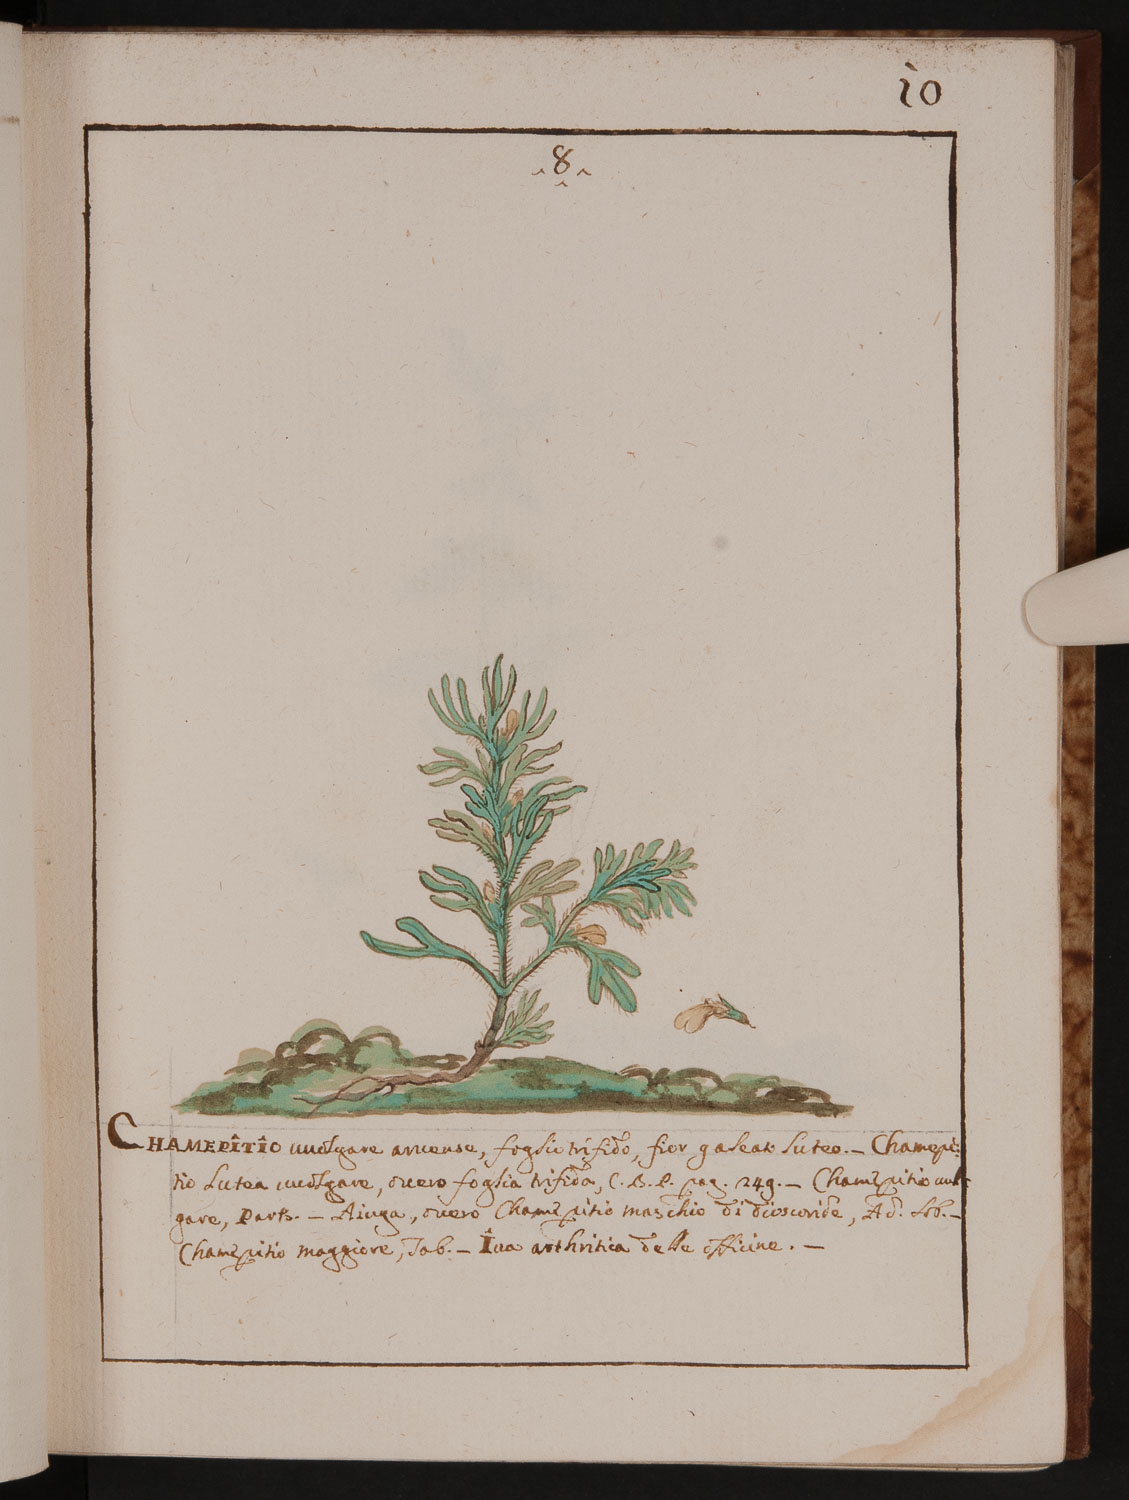 10
8
CHAMEPITIO vuolgare arvense, foglio trifido, fior galeato luteo. - Chamepi:
tio Lutea vuolgare, overo foglia trifida, C. B. P. pag. 249. - Chamæpitio vul-
gare, Park. - Aiuga, overo Chamæpitio maschio di dioscoride, Ad. Lob. -
Chamæpitio maggiore, Tab. - Iva arthritica delle officine. -